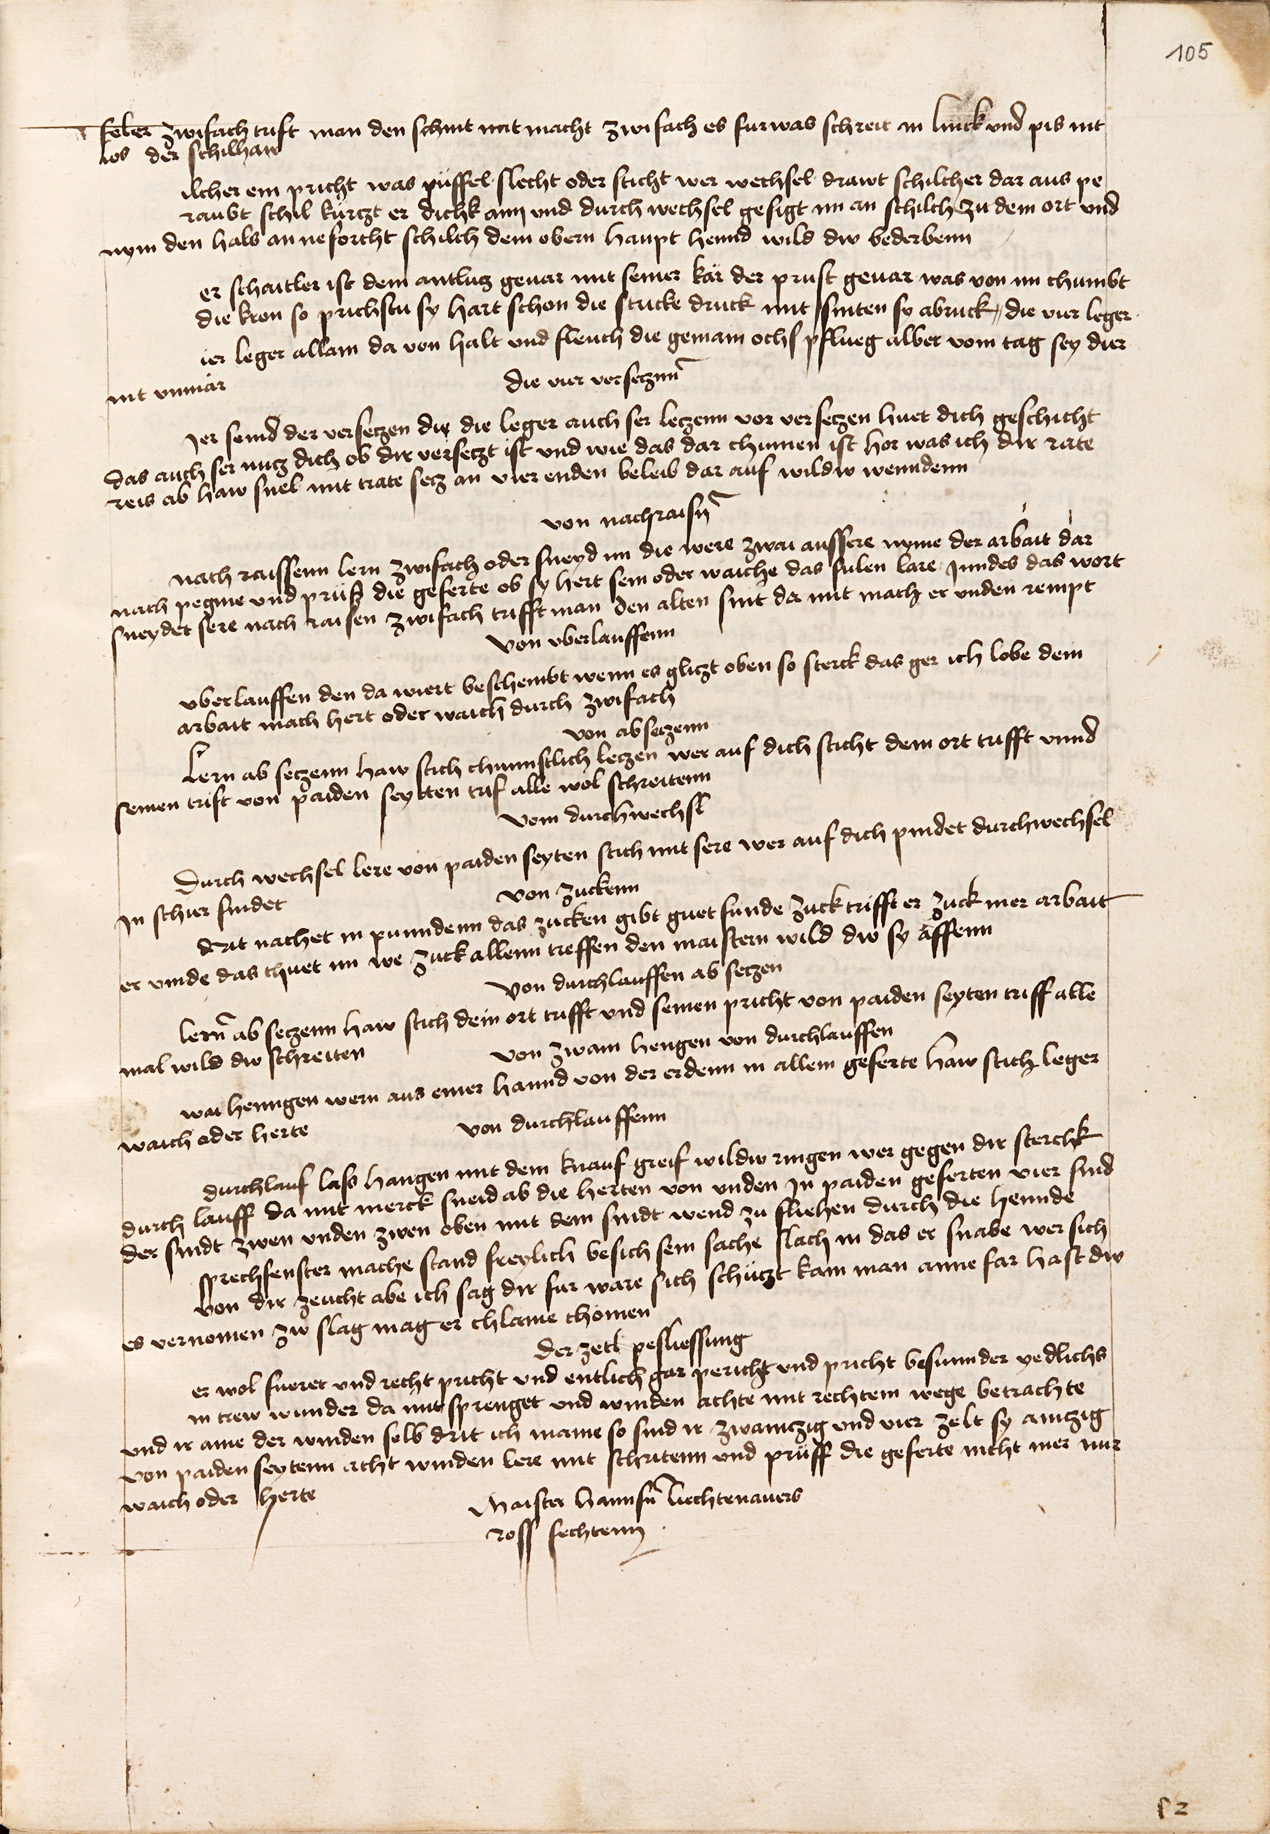 105
keler zwifach trift man den schnit mit macht zwifach es furwas schreit in linck und pis nit
los der schilhaw
ilcher ein pricht was püffel slecht oder sticht wer wechsel drawt schilcher dar aus pe
raubt schil kürczt er dichk ann und durch wechsel gesigt im an schilch zu dem ort und
nym den hals an neforcht schilch dem obern haupt hennd wild dw bederbenn
er schaitler ist dem antlutz gevar mit seiner kär der prust gevar was von im chumbt
die kron so prichstu sy hart schon die stucke druck mit sniten sy abruck die vier leger
ier leger allain da von halt und fleuch die gemain ochs pflueg alber vom tag sey dier
nit unmär
die vier verseczn̄
Jer seind der verseczen die die leger auch ser leczenn vor verseczen huet dich geschicht
das auch ser nutz dich ob dir verseczt ist und wie das dar chumen ist hor was ich dir rate
reis ab haw snel mit trate secz an vier enden beleib dar auf wildw wenndenn
von nachraisn̄
nach raissenn lern zwifach oder sneyd im die were zwai aussere nyme der arbait dar
nach pegine und prüff die geferte ob sy hert sein oder waiche das fulen lare Inndes das wort
sneydet sere nach raisen zwifach trifft man den alten snit da mit mach er unden rempt
von uberlauffenn
uberlauffen den da wiert beschembt wenn es gliczt oben so sterck das ger ich lobe dein
arbait mach hert oder waich durch zwifach
von abseczenn
Lern ab seczenn haw stich chunnstlich leczen wer auf dich sticht dem ort trifft unnd
seinen trift von paiden seytten trif alle wol schreitenn
vom durchwechsl
Durch wechsel lere von paiden seyten stich mit sere wer auf dich pindet durchwechsel
In schier findet
von zuckenn
drit nachet in punndenn das zucken gibt guet funde zuck trifft er zuck mer arbait
er vinde das thuet im we zuck allenn treffen den maistern wild dw sy äffenn
von durchlauffen ab seczen
lern̄ ab seczenn haw stich dein ort trifft und seinen pricht von paiden seyten triff alle
mal wild dw schreiten
von zwain hengen von durchlauffen
wai henngen wern aus einer hannd von der erdenn in allem geferte haw stich leger
waich oder herte
von durchlauffenn
durchlauf lass hangen mit dem knauf greif wildw ringen wer gegen dir sterchk
durch lauff da mit merck sneid ab die herten von unden In paiden geferten vier sind
der sindt zwen unden zwen oben mit dem sindt wend zu fliehen durch die hennde
sprechfenster mache stand freylich besich sein sache slach in das er snabe wer sich
von dir zeucht abe ich sag dir fur ware sich schüczt kain man anne far hast dw
es vernomen zw slag mag er chlaine chomen
der zetl pesliessung
er wol fueret und recht pricht und entlich gar pericht und pricht besunnder yedlichs
in trew wunder da mit sprenget und winden achte mit rechtem wege betrachte
und ir aine der winden selb drit ich maine so sind ir zwainczig und vier zelt sy ainczig
von paiden seytenn acht winden lere mit schritenn und prüff die geferte nicht mer nur
waich oder herte
Maister hannsn̄ liechtenauers
ross fechtenn